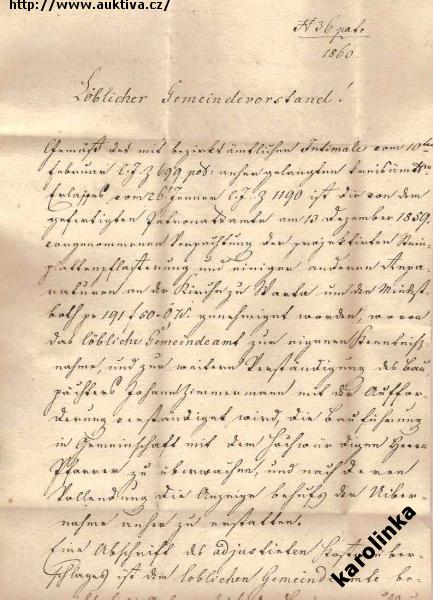 http://www.auktiva.cz/
№ 36 patr
1860.
Löblicher Gemeindevorstand!
Gemäß des mit bezirksämtlichen Intimate vom 10ten
Februar l. J. Z 699 pod: anher gelangten kreisämtlichen
Erlasses vom 26t Jenner l. J. Z 1190 ist die von dem
gefertigten Patronatsamte am 13 Dezember 1859.
vorgenommene Verpachtung der projektirten Stein-
plattenpflasterung und einiger anderen Repa-
raturen an der Kirche zu Warta um den Mindest-
both pr 191 f 50 x O W. genehmiget worden, wovon
das löbliche Gemeindeamt zur eigenen Kenntniß-
nahme, und zur weitern Verständigung des Bau-
pächters Johann Zimmermann mit der Auffor-
derung verständiget wird, die Bauführung
in Gemeinschaft mit dem Hochwürdigen Herrn
Pfarrer zu überwachen, und nach deren
Vollendung die Anzeige behufs der Uiber-
nahme anher zu erstatten.
Eine Abschrift des adjustirten Kostenüber-
schlages ist dem löblichen Gemeindeamte be-
karolinka